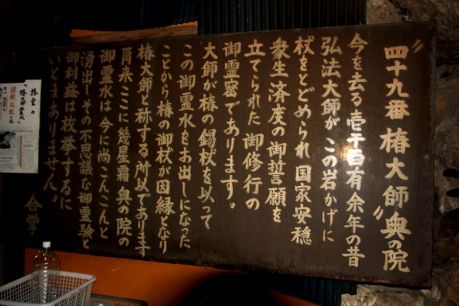 〝四十九番 椿大師 奥の院〟
今を去る壱千百有余年の昔
弘法大師がこの岩かげに
杖をとどめられ国家安穏
衆生済度の御誓願を
立てられた御修行の
御霊窟であります。
大師が椿の錫杖を以って
この御霊水をお出しになった
ことから椿の御杖が因縁となり
椿大師と称する所以であります
爾来ここに幾星霜奥の院の
御霊水は今に尚こんこんと
湧出しその不思議な御霊験と
御利益は枚挙するに
いとまありません。
合掌